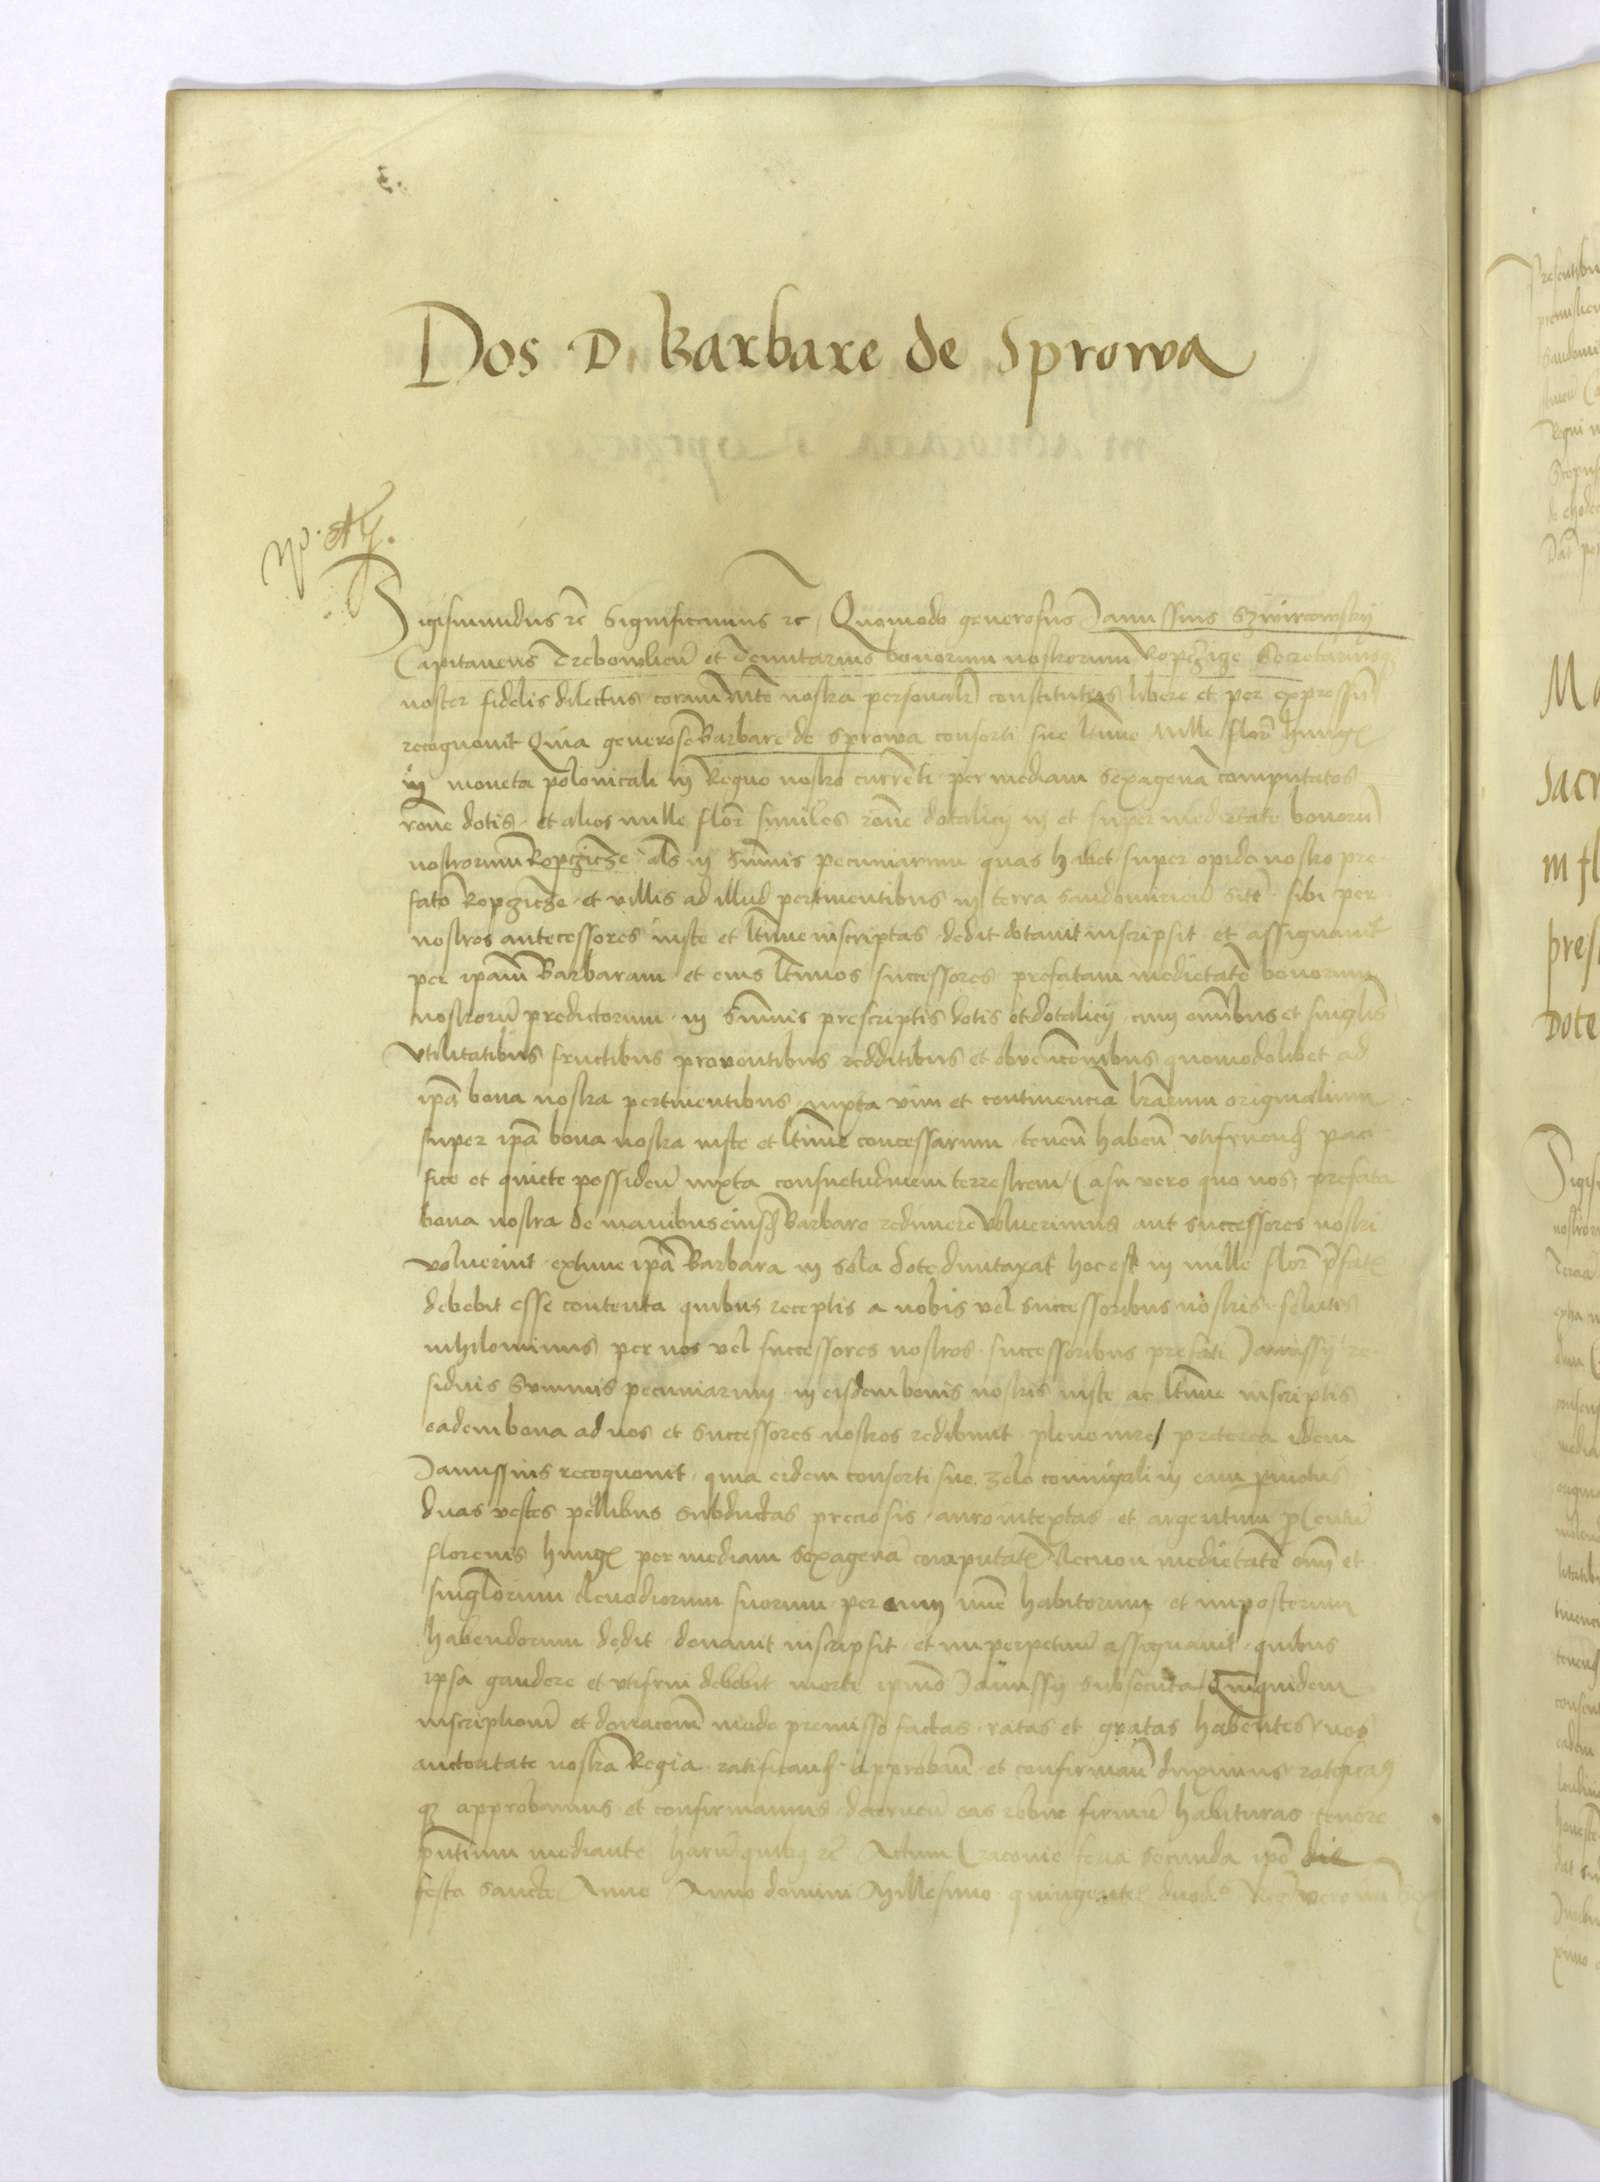 Dos D. Barbare de Sprowa
Sigismundus rc̄ Significamus rc / Quomodo generosus Janussius Szwirczowsky
Capitaneus Trebowlien̄ et Tenutarius bonorum nostrorum Ropczicze Secretariusqȝ
noster fidelis dilectus coram Mte nostra personalr̄ constitutus libere et per expressū
recognouit Quia generose Barbare de Sprowa consorti sue ltīme Mille flor̄ hungꝫ
in moneta polonicali in Regno nostro currēti per mediam sexagenā computatos
rōne dotis et alios mille flor̄ similes rōne dotalicy in et super medietate bonorū
nostrorum Ropczicze als̄ in Sum̄is pecuniarum quas habet super opido nostro pre
fato Ropczicze et villis ad illud pertinentibus in terra Sandomirien̄ sitꝫ sibi per
nostros antecessores iuste et ltīme inscriptas dedit dotauit inscripsit et assignauit
per ipam̄ Barbaram et eius ltīmos successores prefatam medietatē bonorum
nostrorū predictorum in Sum̄is prescriptis dotis et dotalicy cum om̄ibus et singlis̄
vtilitatibus fructibus prouentibus redditibus et obuencōnibus quomodolibet ad
ipā bona nostra pertinentibus iuxta vim et continenciā lrārum originalium
super ipā bona nostra iuste et ltīme concessarum tenen̄ haben̄ vtifruendꝫ paci
fice et quiete possiden̄ iuxta consuetudinem terrestrem / Casu vero quo nos prefata
bona nostra de manibus eiusdꝫ Barbare redimere voluerimus aut successores nostri
voluerint extunc ipā Barbara in sola dote duntaxat hoc est in mille flor̄ p̄fatꝫ
debebit esse contenta quibus receptis a nobis vel successoribus nostris solutis
nihilominus per nos vel successores nostros successoribus prefati Janussy re
siduis Summis pecuniarum in eisdem bonis nostris iuste ac ltīme inscriptis
eadem bona ad nos et successores nostros redibunt pleno iure / preterea idem
Janussius recognouit quia eidem consorti sue zelo coniugali in eam p̄motus
duas vestes pellibus subductas preciosis auro intextas et argentum p Centū
florenis hungꝫ per mediam sexagenā computatꝫ Necnon medietatē om̄ et
singlorum clenodiorum suorum per eum nūc habitorum et inposterum
habendorum dedit donauit inscripsit et inperpetuū assignauit quibus
ipsa gaudere et vtifrui debebit morte ipius̄ Janussy subsecuta / Quiquidem
inscriptionē et donacōnē modo premisso factas ratas et gratas habentes nos
auctoritate nostra Regia ratificandꝫ approbān̄ et confirmān̄ duximus ratificam̄
qȝ approbamus et confirmamus decernen̄ eas robur firmū habituras tenore
pn̄tium mediante harū quibus rc̄ Actum Cracouie feria secunda ipō die
festo sancte Anne Anno domini Millesimo quingentes duod.º Regni vero nr̄i